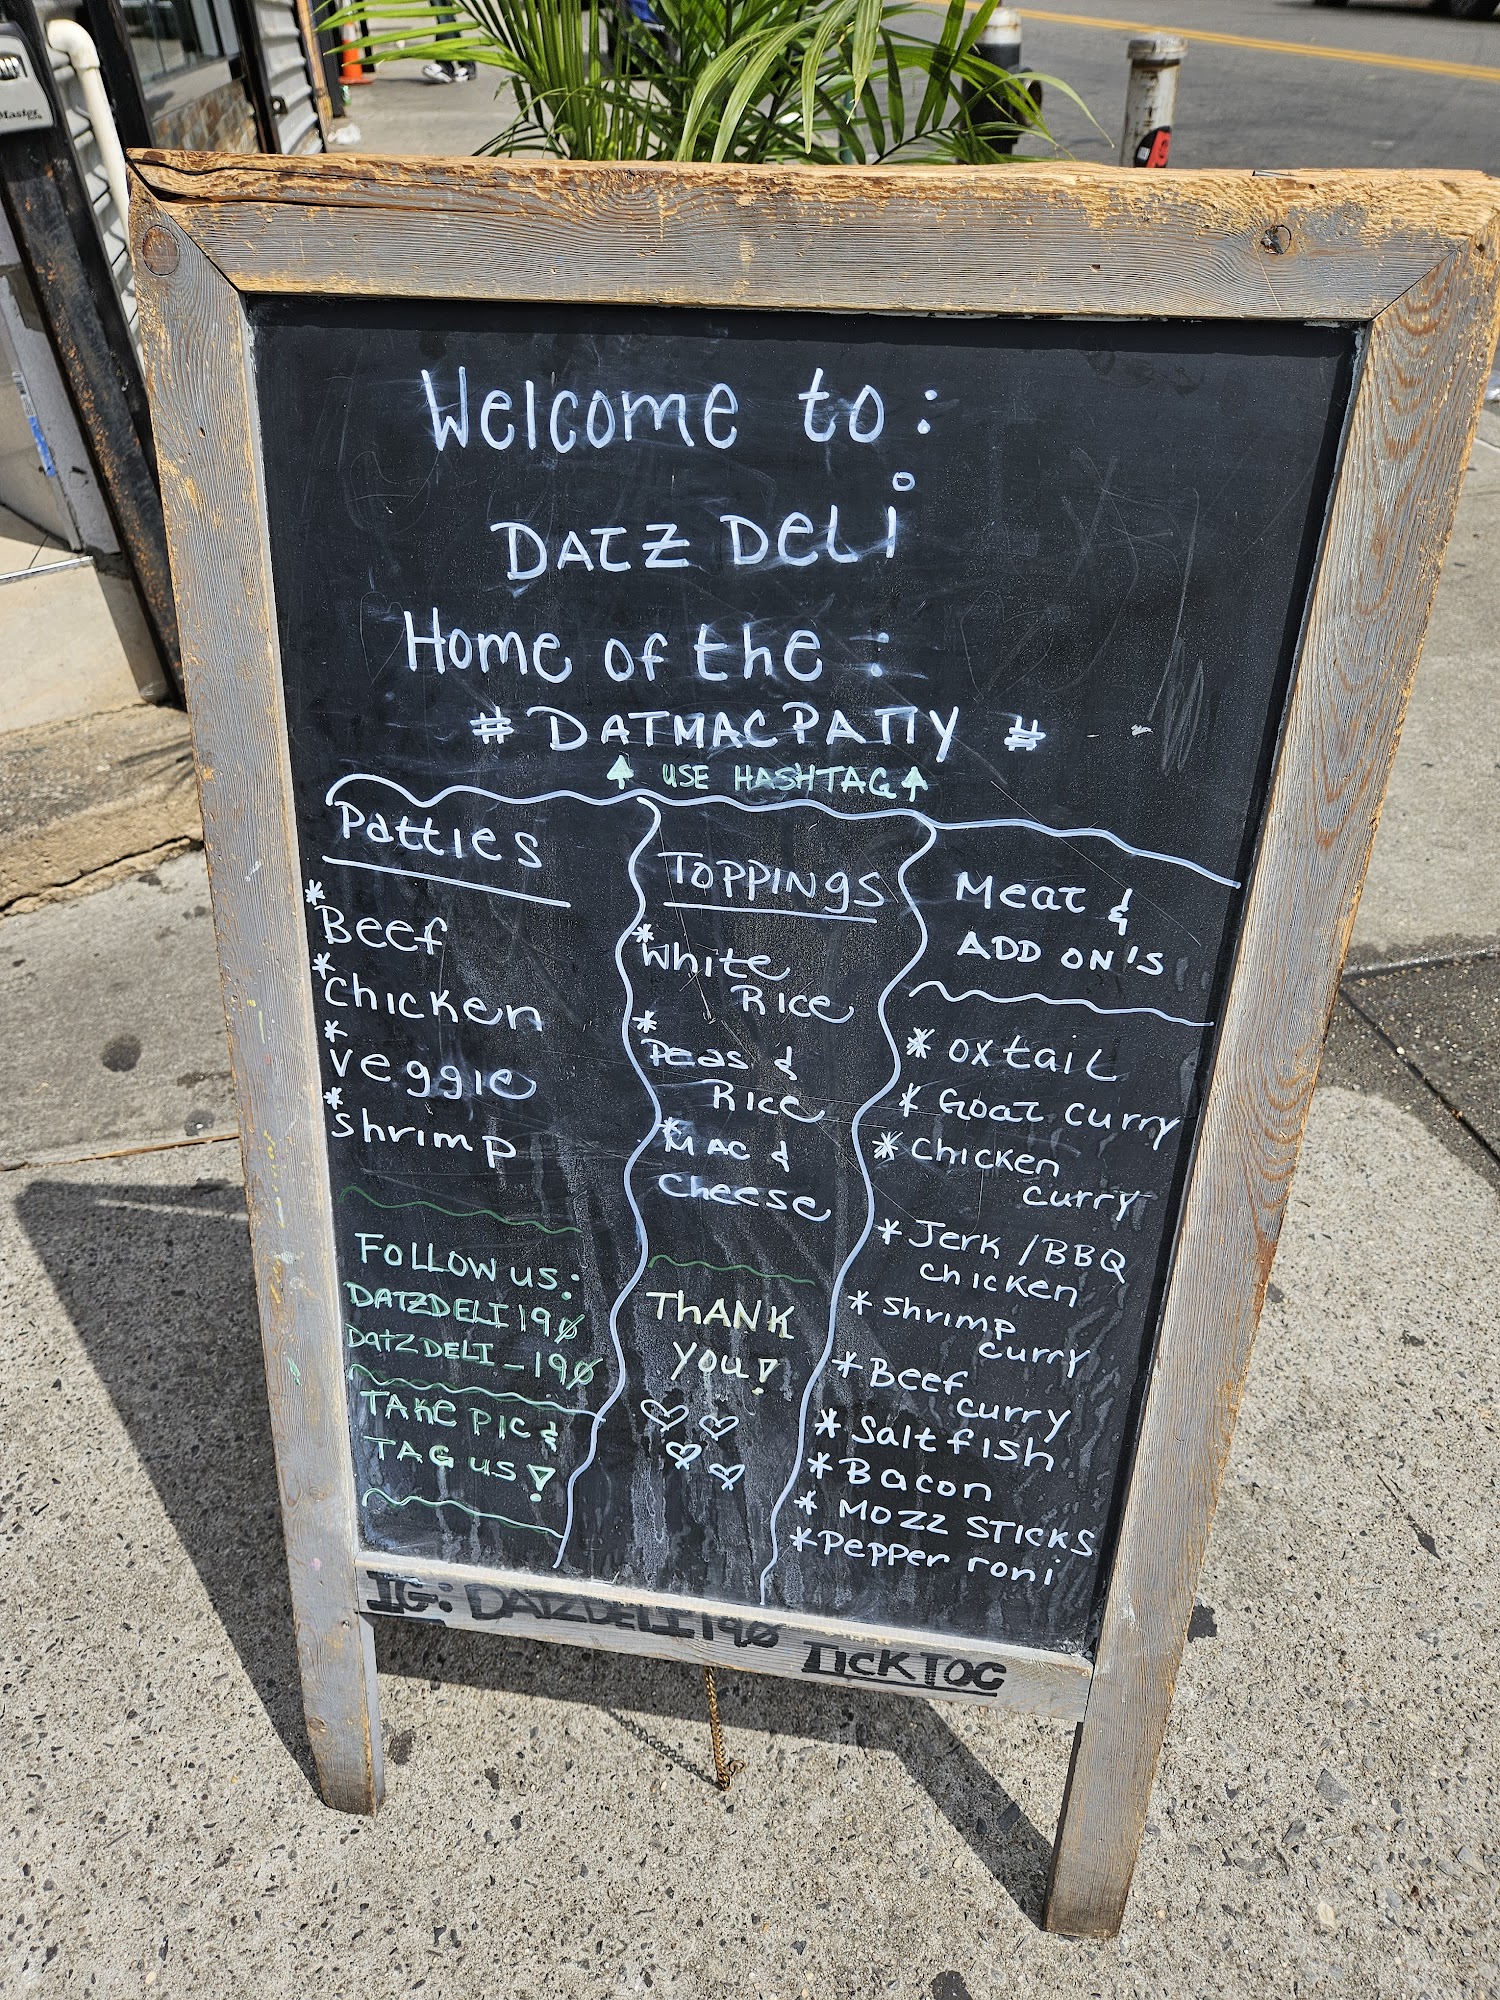 Master
Welcome to:
DATZ DELi
Home of the:
# DATMACPATTY #
↑ USE HASHTAG ↑
Patties
* Beef
* chicken
* veggie
* shrimp
FOLLOW US:
DATZDELI190
DATZDELI_190
TAKE PIC &
TAG US!
TOPPINGS
* White
Rice
* Peas &
Rice
* MAC &
cheese
THANK
YOU!
Meat &
ADD ON'S
* oxtail
* Goat curry
* Chicken
curry
* Jerk / BBQ
chicken
* Shrimp
curry
* Beef
curry
* Saltfish
* Bacon
* MOZZ STICKS
* Pepper roni
IG: DATZDELI190 TICKTOC